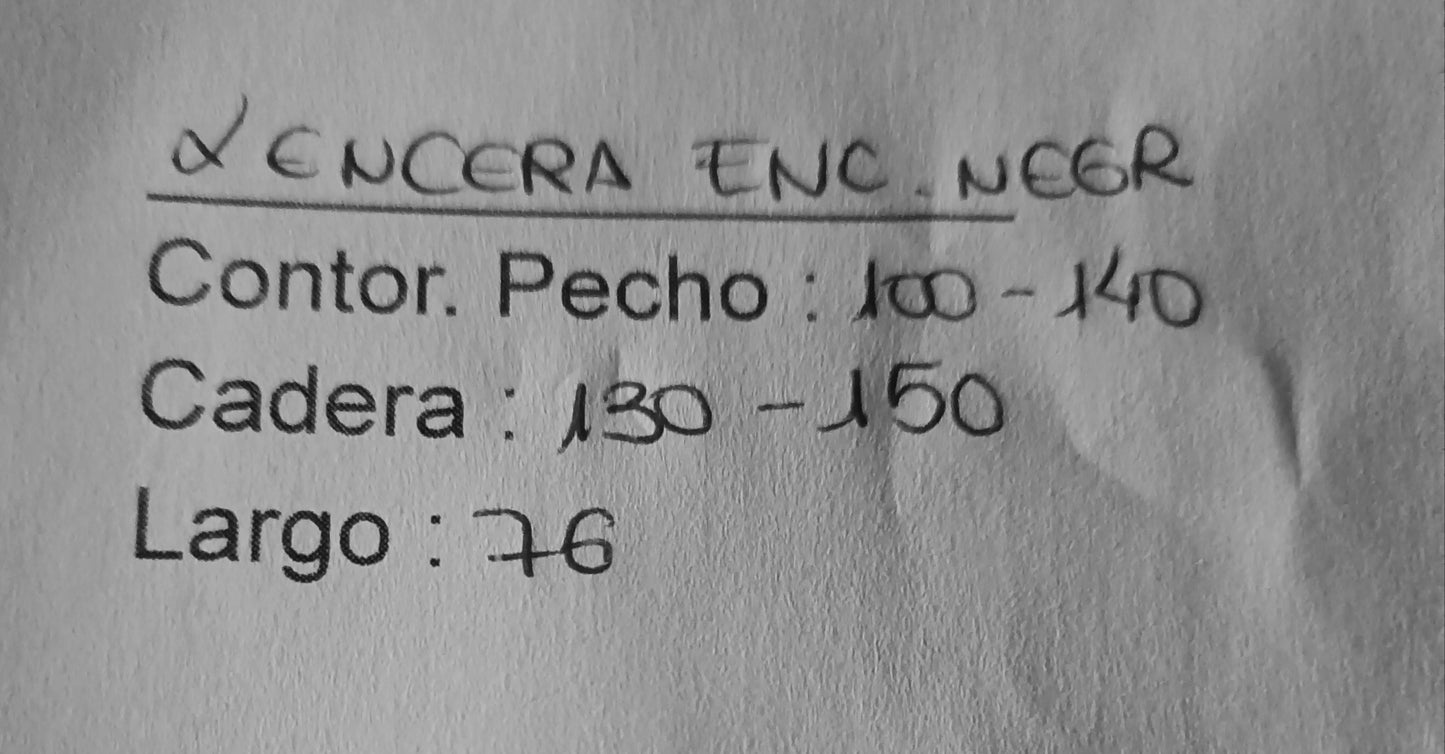 LENCERA ENC. NEGR
Contor. Pecho : 100 - 140
Cadera : 130 - 150
Largo : 76